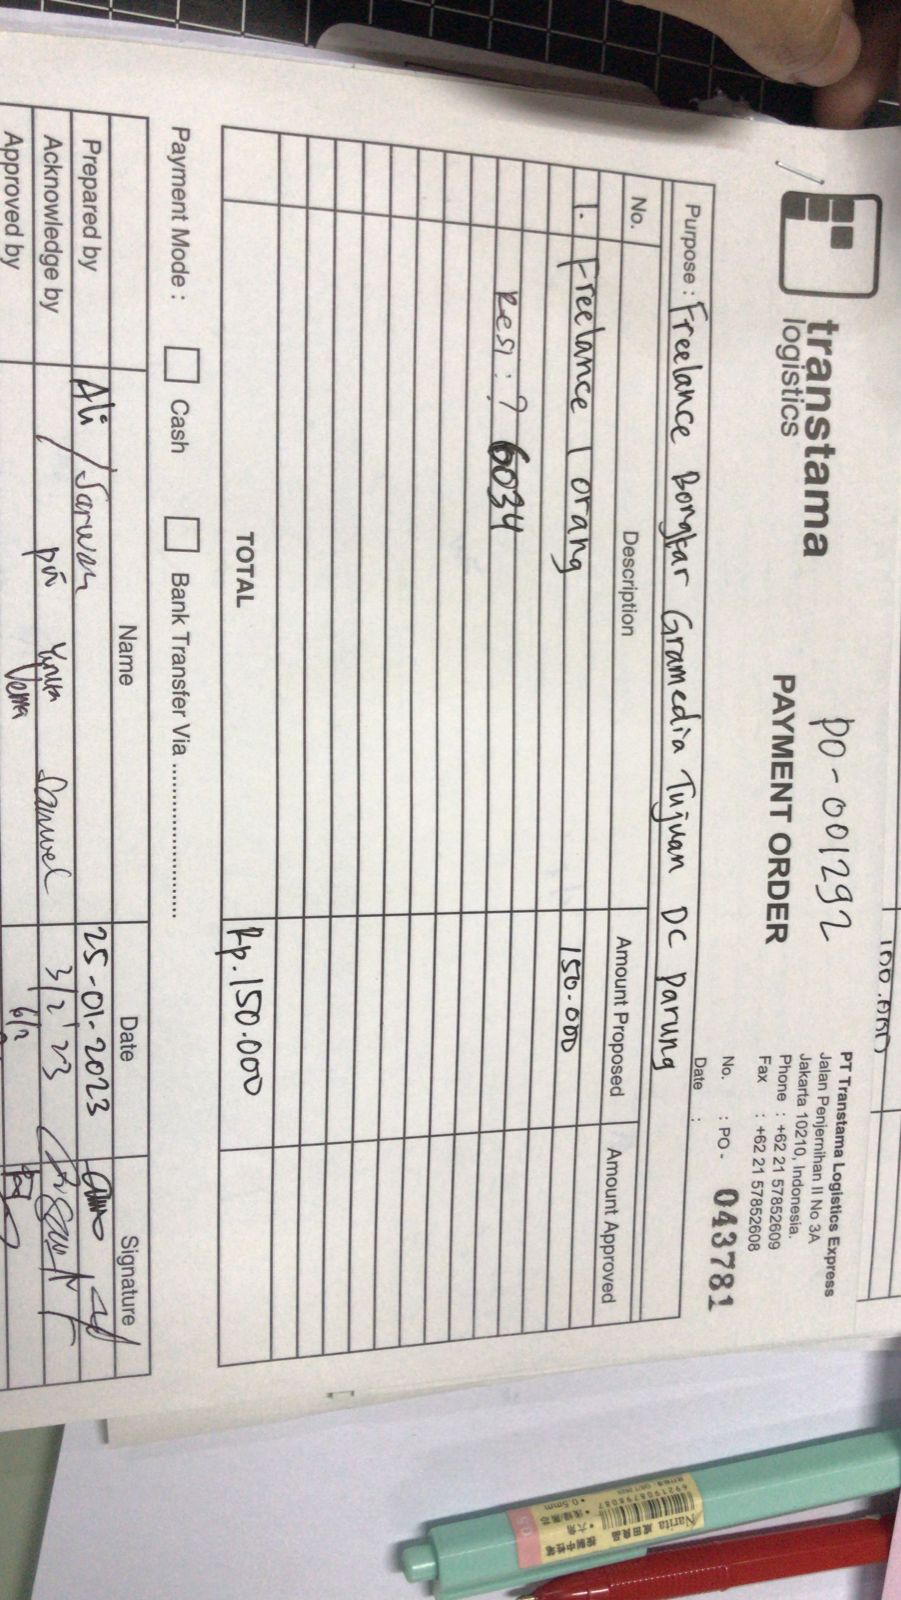 100.000
transtama
logistics
PO-001292
PAYMENT ORDER
PT Transtama Logistics Express
Jalan Penjernihan II No 3A
Jakarta 10210, Indonesia.
Phone : +62 21 57852609
Fax : +62 21 57852608
No. : PO - 043781
Date :
Purpose : Freelance Bongkar Gramedia Tujuan DC Parung
No. Description Amount Proposed Amount Approved
1. Freelance 1 orang 150.000
Resi : ? 6034
TOTAL Rp.150.000
Payment Mode : Cash Bank Transfer Via ..............................
Name Date Signature
Prepared by Ali / Sarwan 25-01-2023
Acknowledge by Samuel 3/2'23
Approved by Vema 6/2
Narita
0.5
0.5mm
6921908798087